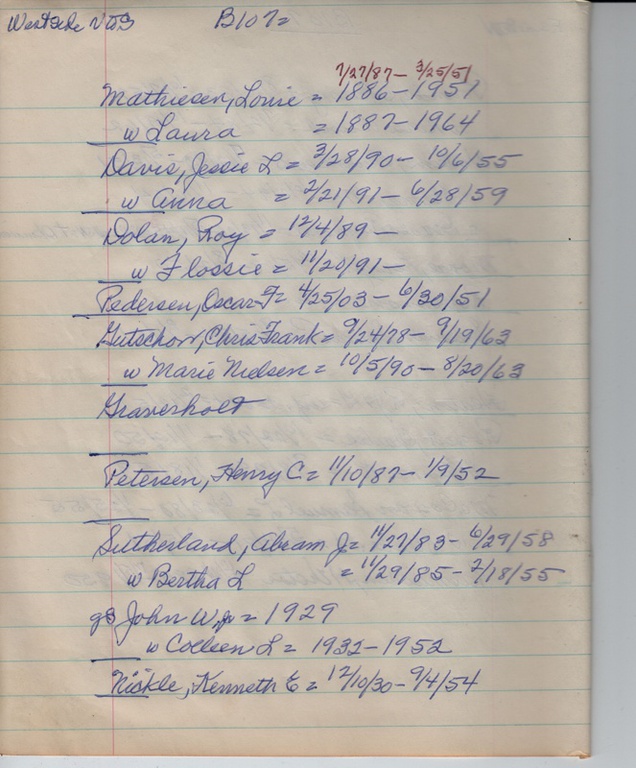 Westside V83 B107=
7/27/87 - 3/25/51
Mathiesen, Louie = 1886-1951
w Laura = 1887-1964
Davis, Jessie L = 3/28/90 - 10/6/55
w Anna = 2/21/91 - 6/28/59
Dolan, Roy = 12/4/89 -
w Flossie = 11/20/91 -
Pedersen, Oscar F = 4/25/03 - 6/30/51
Gutschow, Chris Frank = 9/24/78 - 9/19/63
w Marie Nielsen = 10/5/90 - 8/20/63
Graverholt
Petersen, Henry C = 11/10/87 - 1/9/52
Sutherland, Abram J = 11/27/83 - 6/29/58
w Bertha L = 11/29/85 - 2/18/55
gs John W, jr = 1929
w Colleen L = 1932-1952
Nickle, Kenneth E = 12/10/30 - 9/4/54